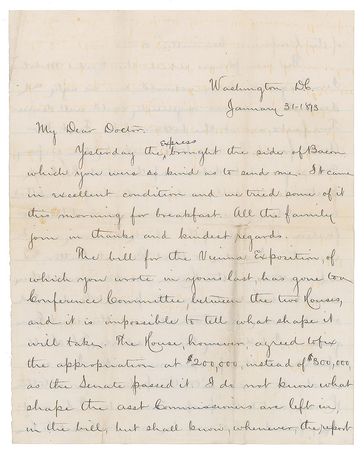 Washington D.C.
January 31-1873
My Dear Doctor.
express
Yesterday the, brought the side of Bacon
which you were so kind as to send me. It came
in excellent condition and we tried some of it
this morning for breakfast. All the family
join in thanks and kindest regards.
The bill for the Vienna Exposition, of
which you wrote in yours last, has gone to a
Conference Committee, between the two Houses,
and it is impossible to tell what shape it
will take. The House, however, agreed to fix
the appropriation at $200,000, instead of $300,000,
as the Senate passed it. I do not know what
shape the asst Commissioners are left in,
in the bill, but shall know, whenever, the report